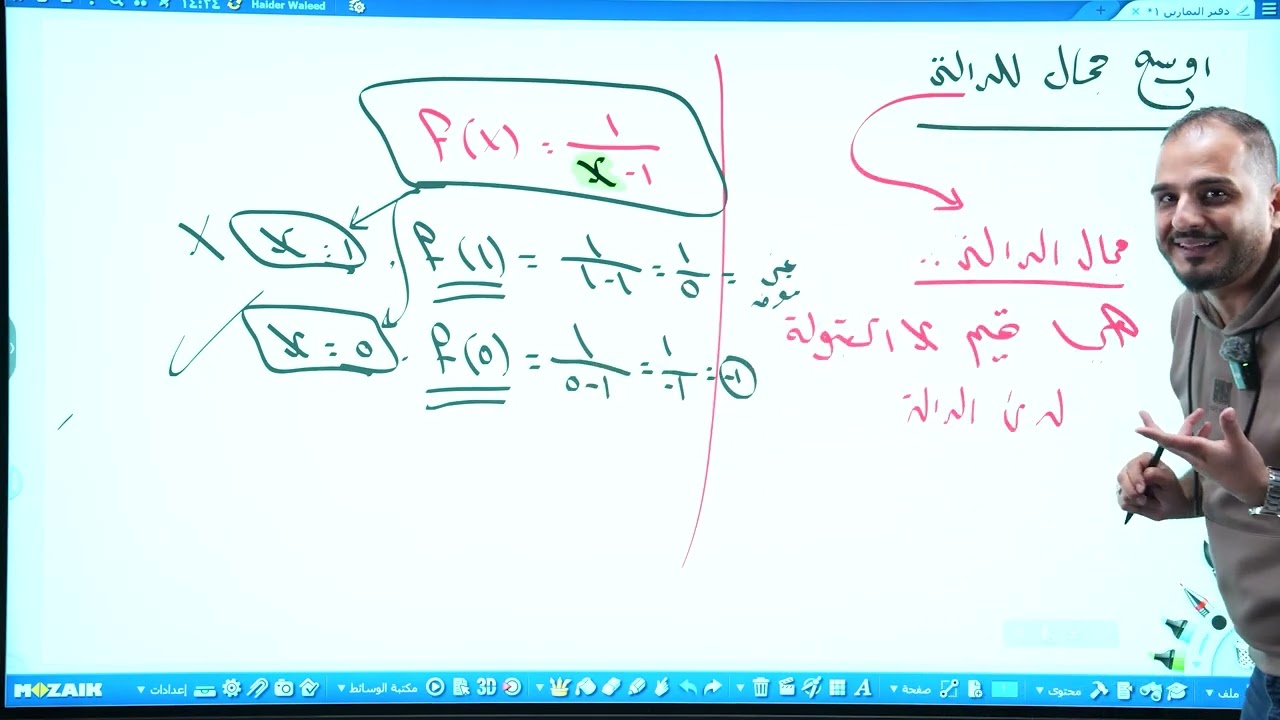 ١٤:٢٤ Haider Waleed
دفتر التمارين ١*
اوسع مجال للدالة
مجال الدالة ..
هي قيم x المقبولة
لدى الدالة
f(x) = 1/x-1
x = 1 . f(1) = 1/1-1 = 1/0 = غير معرف
x = 0 . f(0) = 1/0-1 = 1/-1 = -1
MOZAIK إعدادات مكتبة الوسائط 3D A صفحة محتوى ملف